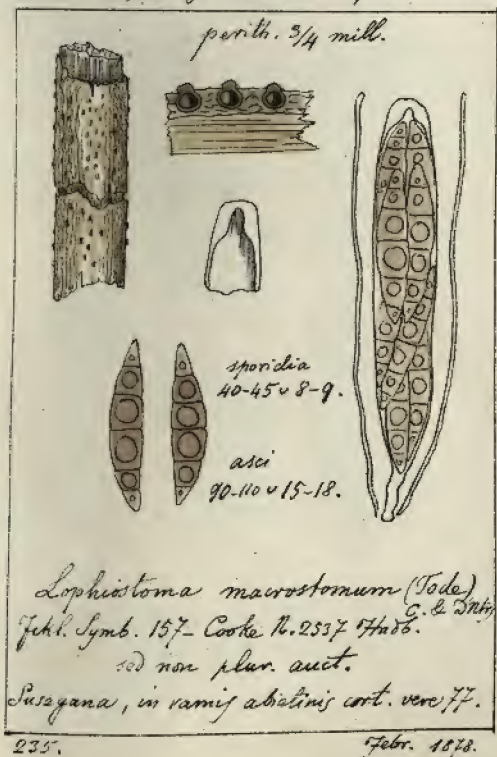 perith. 3/4 mill.
sporidia
40-45 v 8-9.
asci
90-110 v 15-18.
Lophiostoma macrostomum (Tode)
C. & DNtrs
Fckl. Symb. 157 - Cooke N. 2537 Hndb.
sed non plur. auct.
Susegana, in ramis abietinis cort. vere 77.
235.
Febr. 1878.